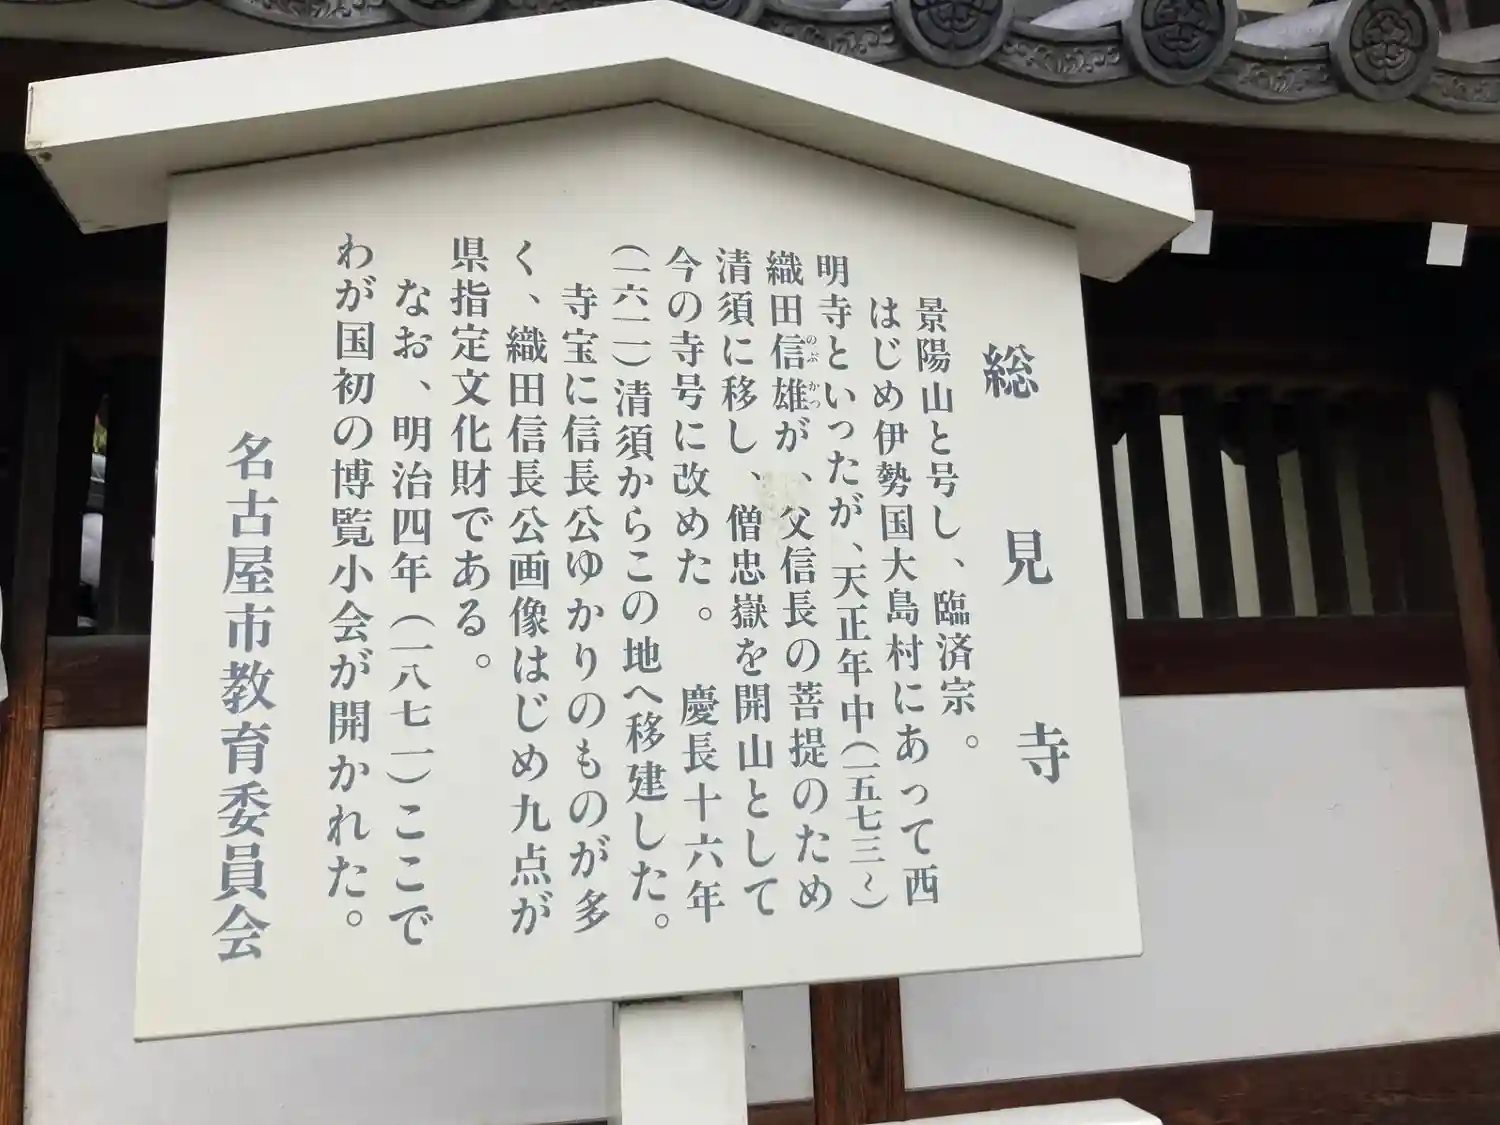 総見寺
景陽山と号し、臨済宗。
はじめ伊勢国大島村にあって西
明寺といったが、天正年中(一五七三~)
織田信雄が、父信長の菩提のため
のぶかつ
清須に移し、僧忠嶽を開山として
今の寺号に改めた。 慶長十六年
(一六一一)清須からこの地へ移建した。
寺宝に信長公ゆかりのものが多
く、織田信長公画像はじめ九点が
県指定文化財である。
なお、明治四年(一八七一)ここで
わが国初の博覧小会が開かれた。
名古屋市教育委員会